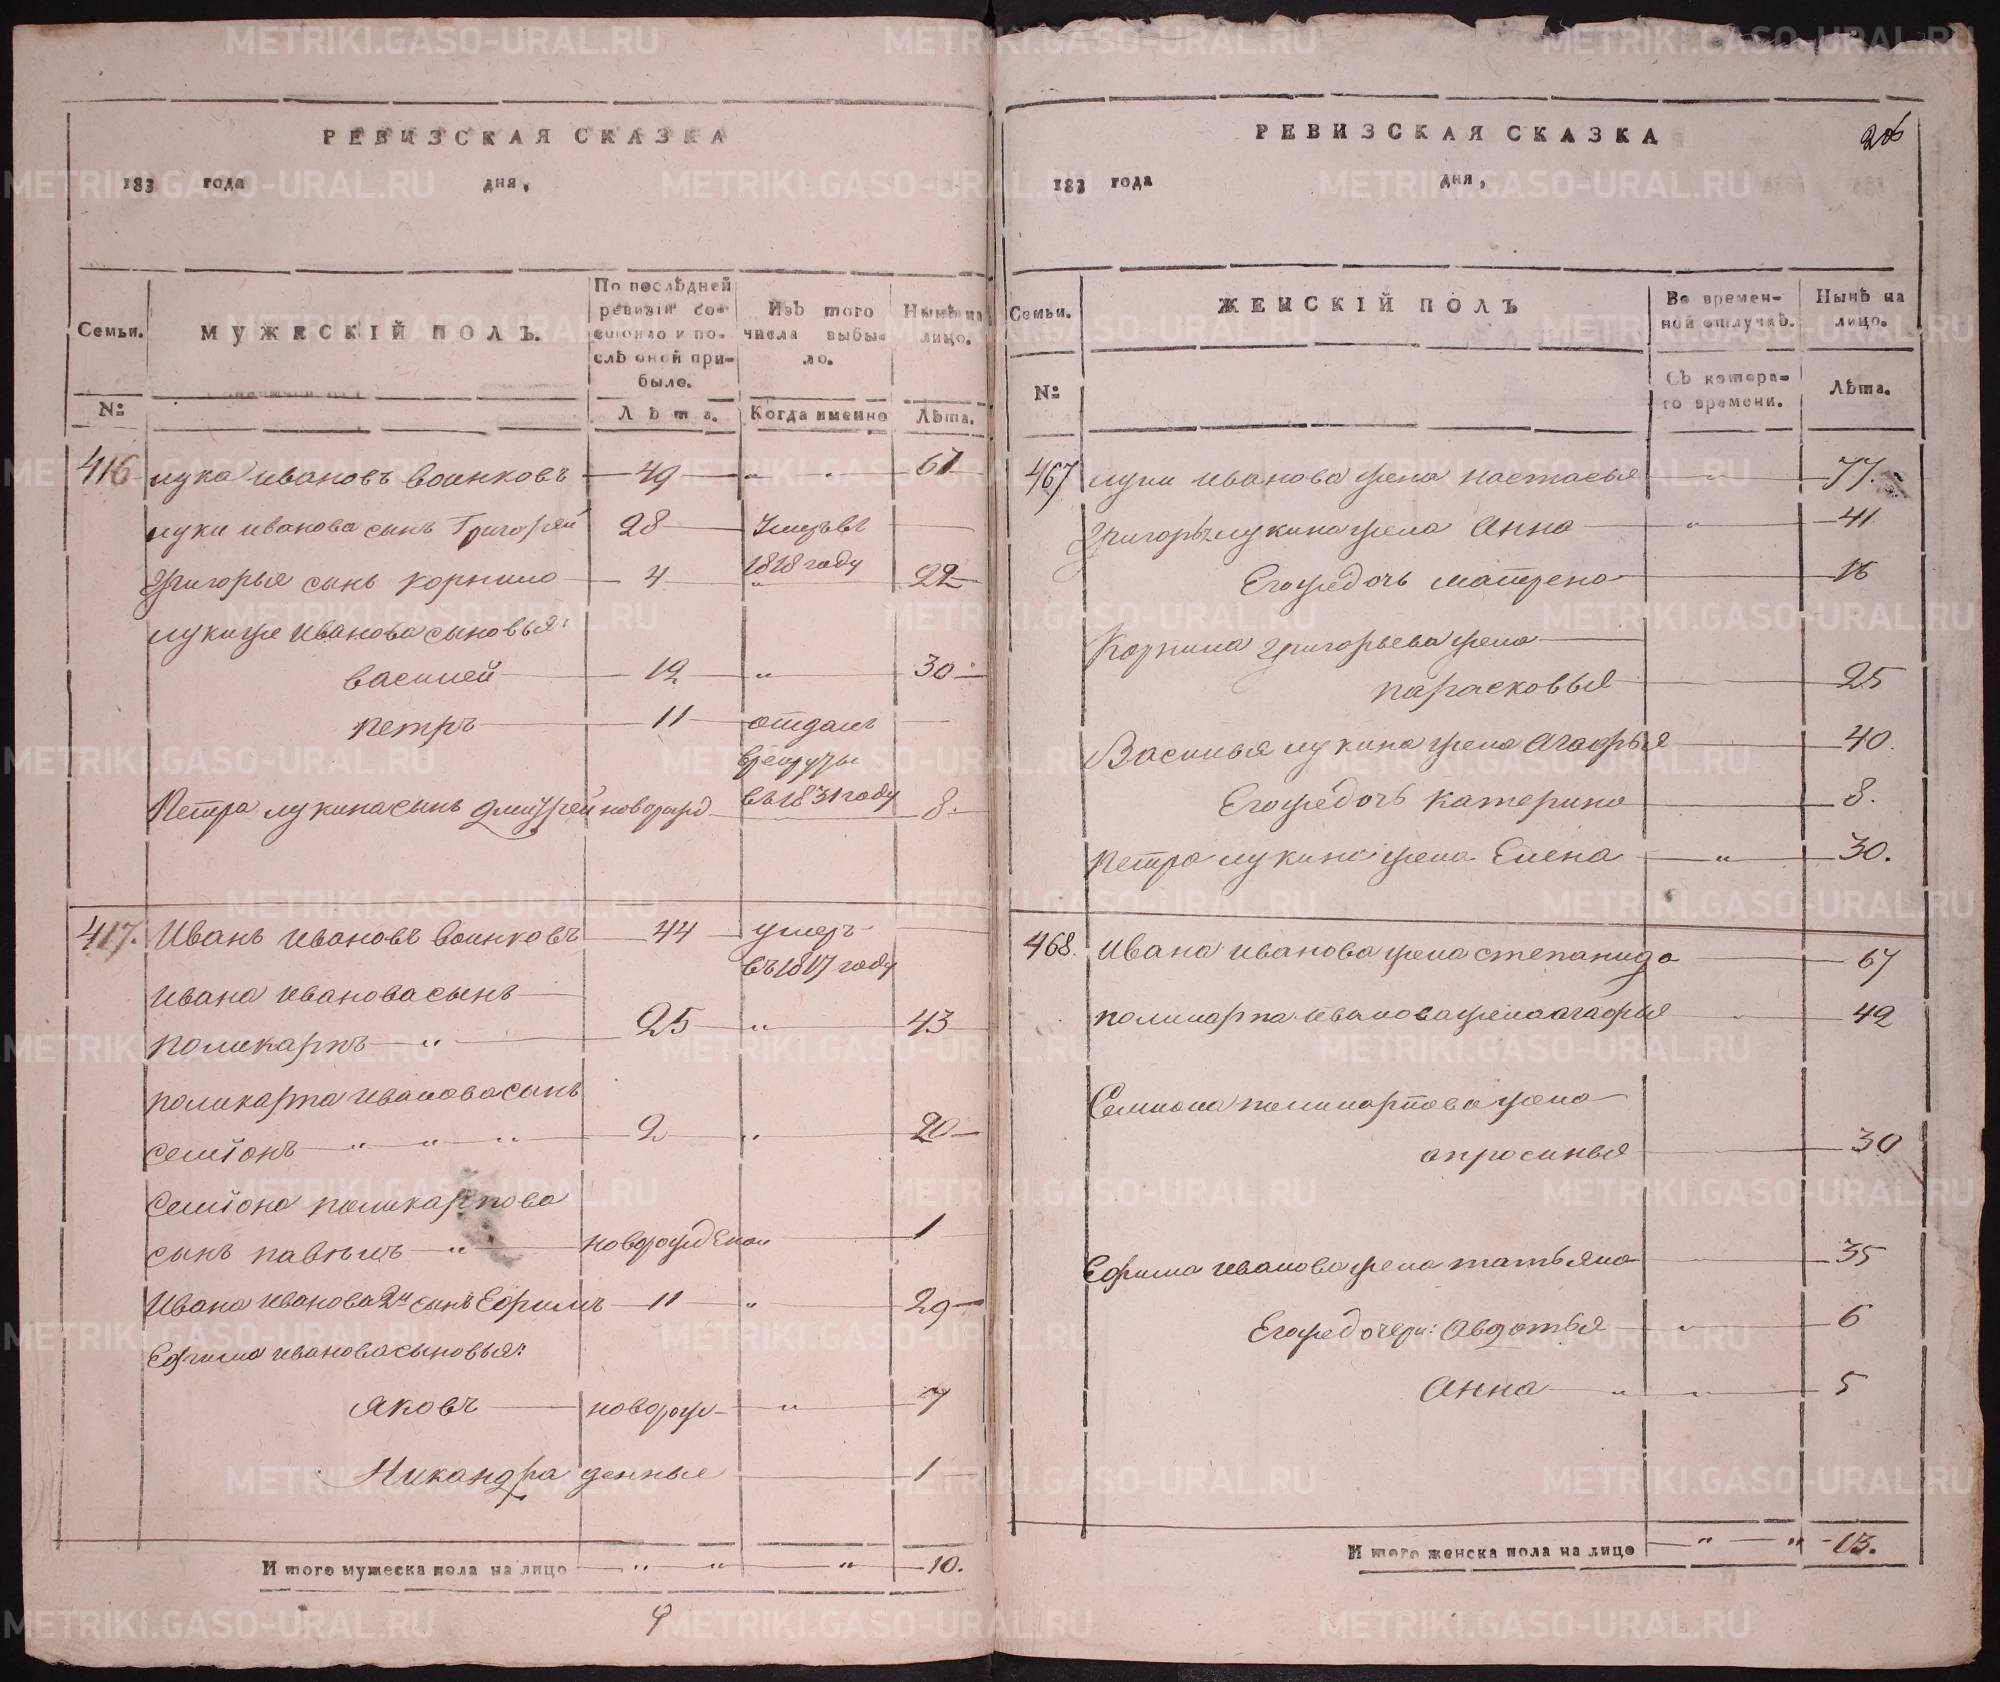 РЕВИЗСКАЯ СКАЗКА
183 года дня,
Семьи.
МУЖЕСКІЙ ПОЛЪ.
По послѣдней
ревизіи со-
стояло и по-
слѣ оной при-
было.
Изъ того
числа выбы-
ло.
Нынѣ на
лицо.
№
Лѣта.
Когда именно
Лѣта.
416 лука ивановъ воинковъ 49 " " 67
луки иванова сынъ Григорей 28 Умеръ въ
1818 году
Григорья сынъ корнило 4 " 22
луки же Иванова сыновья:
василей 12 " 30
петръ 11 отданъ
в рекруты
въ 1831 году
Петра лукина сынъ дмитрей новорожд 8.
417. Иванъ ивановъ воинковъ 44 умеръ
въ 1817 году
ивана иванова сынъ
поликарпъ " 25 " 43
поликарпа иванова сынъ
семіонъ " " " 2 " 20
Семіона поликарпова
сынъ павелъ " новорожденой 1
Ивана иванова 2й сынъ Ефримъ 11 " 29
Ефрима иванова сыновья:
яковъ новорож- " 7
Никандра денные 1
И того мужеска пола на лицо " " " 10.
РЕВИЗСКАЯ СКАЗКА
206
183 года дня,
Семьи.
ЖЕНСКІЙ ПОЛЪ
Во времен-
ной отлучкѣ.
Нынѣ на
лицо.
№
Съ котора-
го времени.
Лѣта.
467 луки иванова жена настасья " 77.
Григорья лукина жена Анна " 41
Его же дочь матрена 16
Корнила григорьева жена
парасковья 25
Василья лукина жена Агафья 40.
Его же дочь катерина 8.
петра лукина жена Елена " 30.
468. Ивана иванова жена степанида 67
поликарпа иванова жена агафья " 42
Семиона поликарпова жена
апросинья 30
Ефрима иванова жена татьяна 35
Его же дочери: авдотья " 6
Анна " " 5
И того женска пола на лицо " " 13.
METRIKI.GASO-URAL.RU